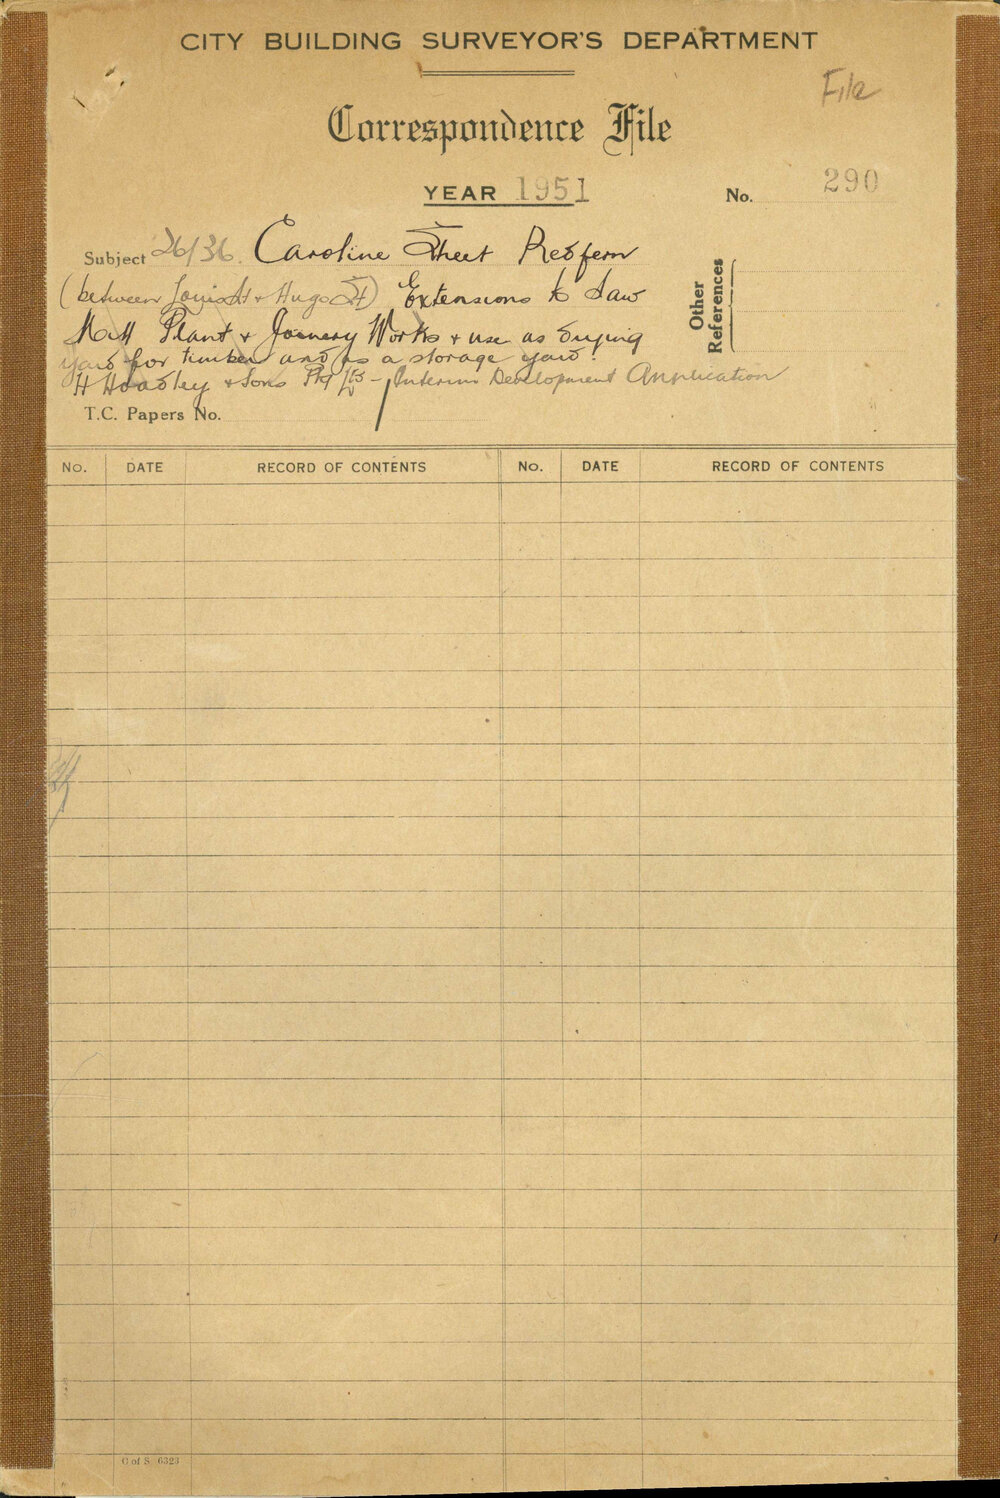 CITY BUILDING SURVEYOR'S DEPARTMENT
File
Correspondence File
YEAR 1951
No. 290
Subject 26/36. Caroline Street Redfern
(between Louis St + Hugo St) Extensions to Saw
Mill Plant + Joinery Works + use as drying
yard for timber and as a storage yard.
H Hoadley + Sons Pty Ltd - Interim Development Application
Other References
T.C. Papers No.
No. DATE RECORD OF CONTENTS No. DATE RECORD OF CONTENTS
C of S 6323